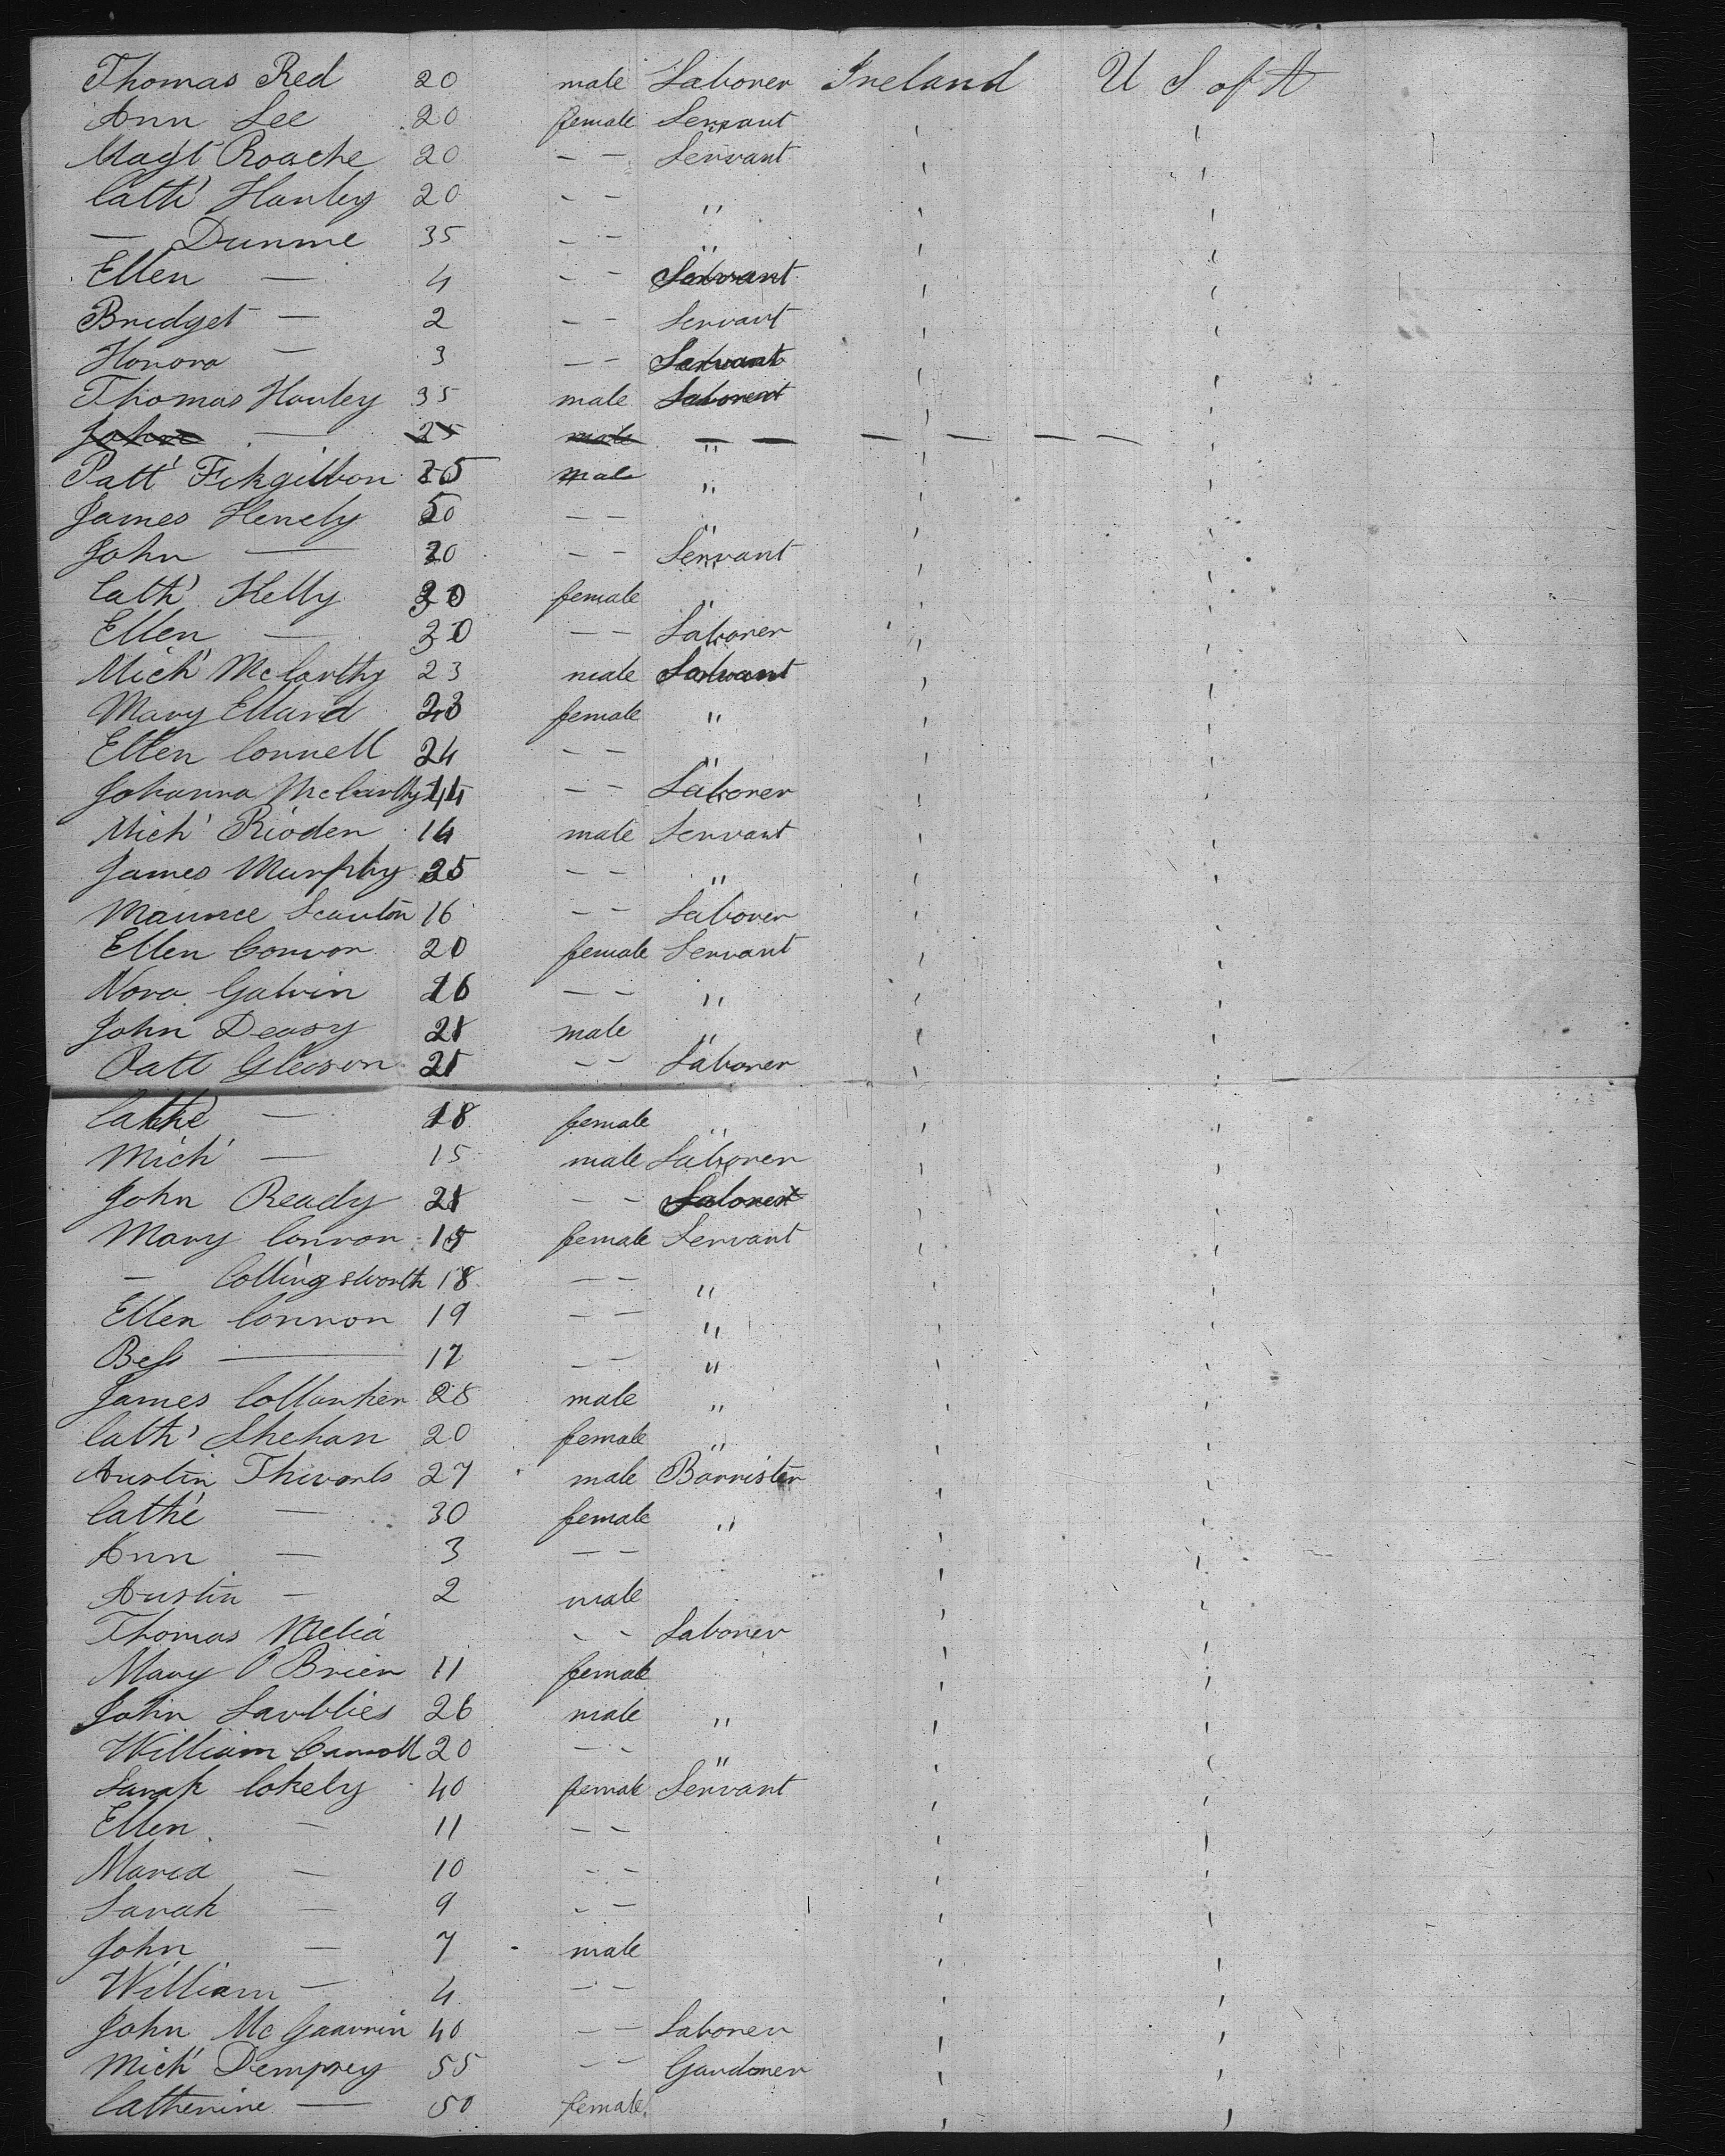 Thomas Red 20 male Laborer Ireland U S of A
Ann Lee 20 female Servant
Magt Roache 20 — — Servant
Cath' Hanley 20 — — "
— Dunne 35 — — "
Ellen — 4 — — Servant
Bridget — 2 — — Servant
Honora — 3 — — Servant
Thomas Hanley 35 male
John — 25 male " — — — — — —
Patt' Fitzgibbon male "
James Henely 50 — — "
John — 20 — — Servant
Cath' Kelly 30 female "
Ellen — 30 — — Laborer
Mich' McCarthy 23 male
Mary Elland female "
Ellen Connell 24 — — "
Johanna McCarthy — — Laborer
Mich' Rioden 14 male Servant
James Murphy 25 — — "
Maurice Scanton 16 — — Laborer
Ellen Connor 20 female Servant
Nora Galvin 16 — — "
John Deasy male "
Patt Gleason — — Laborer
Cathe — 18 female "
Mich' — 15 male Laborer
John Ready — —
Mary Connon female Servant
— Collingsworth 18 — — "
Ellen Connon 19 — — "
Bess — 17 — — "
James male "
Cath' Shehan 20 female "
Austin 27 male Barrister
Cathe — 30 female "
Ann — 3 — —
Austin — 2 male
Thomas Melia — — Laborer
Mary O'Brien 11 female
John 26 male "
William 20 — — "
Sarah Cokely 40 female Servant
Ellen — 11 — —
Maria — 10 — —
Sarah — 9 — —
John — 7 male
William — 4 — —
John 40 — — Laborer
Mich' Dempsey 55 — — Gardener
Catherine — 50 female